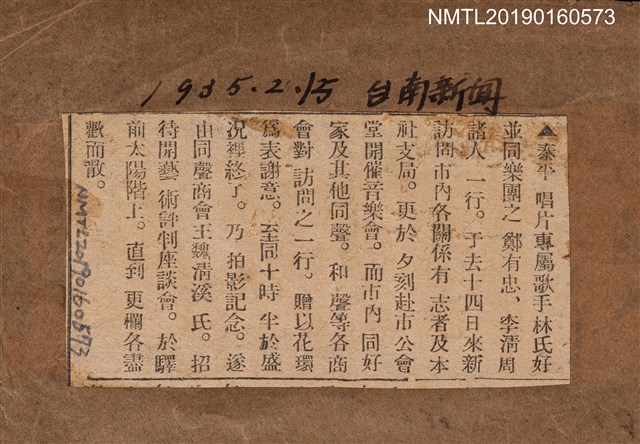 NMTL20190160573
1935.2.15 台南新闻
▲泰平 唱片專屬歌手林氏好
並同樂團之 鄭有忠、李清周
諸人 一行。于去十四日來新
訪問市內各關係有 志者及本
社支局。更於 夕刻赴市公會
堂開催音樂會。而市內 同好
家及其他同聲。和 聲等各商
會對 訪問之一行。贈以花環
爲表謝意。至同十時 半於盛
況裡終了。乃 拍影記念。遂
由同聲商會王魏清溪 氏。招
待開藝 術評判座談會。於驛
前太陽階上。直到 更欄各盡
歡而散。
NMTL20190160573